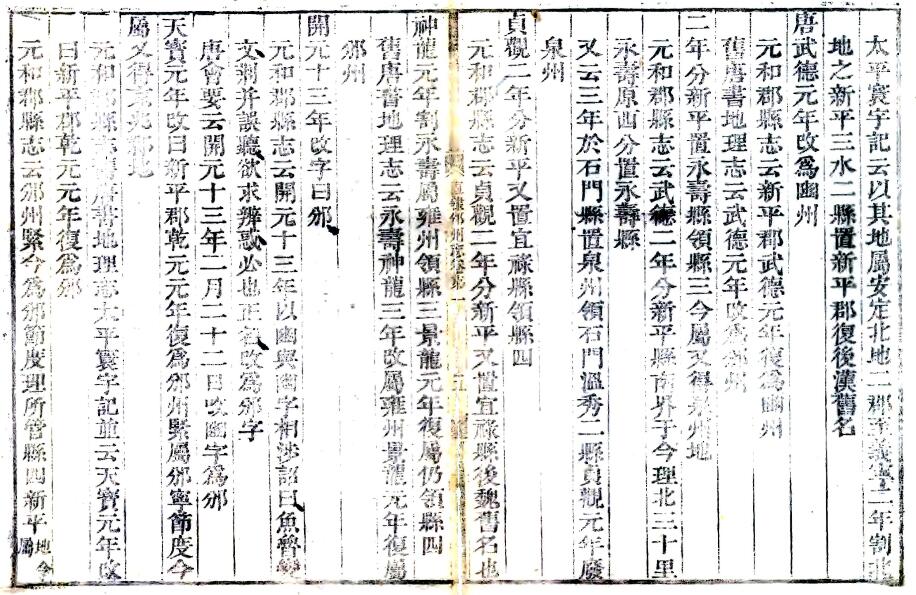 太平寰宇記云以其地屬安定北地二郡至義寧二年割北
地之新平三水二縣置新平郡復後漢舊名
唐武德元年改爲豳州
元和郡縣志云新平郡武德元年復爲豳州
舊唐書地理志云武德元年改爲豳州
二年分新平置永壽縣領縣三今屬又得泉州地
元和郡縣志云武德二年分新平縣南界于今理北三十里
永壽原西分置永壽縣
又云三年於石門縣置泉州領石門溫秀二縣貞觀元年廢
泉州
貞觀二年分新平又置宜祿縣領縣四
元和郡縣志云貞觀二年分新平又置宜祿縣後魏舊名也
神龍元年割永壽屬雍州領縣三景龍元年復屬仍領縣四
舊唐書地理志云永壽神龍三年改屬雍州景龍元年復屬
邠州
開元十三年改字曰邠
元和郡縣志云開元十三年以豳與幽字相涉詔曰魚魯變
文荆并誤聽欲求辨惑必也正名改爲邠字
唐會要云開元十三年二月二十二日改豳字爲邠
天寶元年改曰新平郡乾元元年復爲邠州緊屬邠寧節度今
屬又得 地
元和郡縣志舊唐書地理志太平寰宇記並云天寶元年改
曰新平郡乾元元年復爲邠
元和郡縣志云邠州緊今爲邠節度理所管縣四新平地今屬